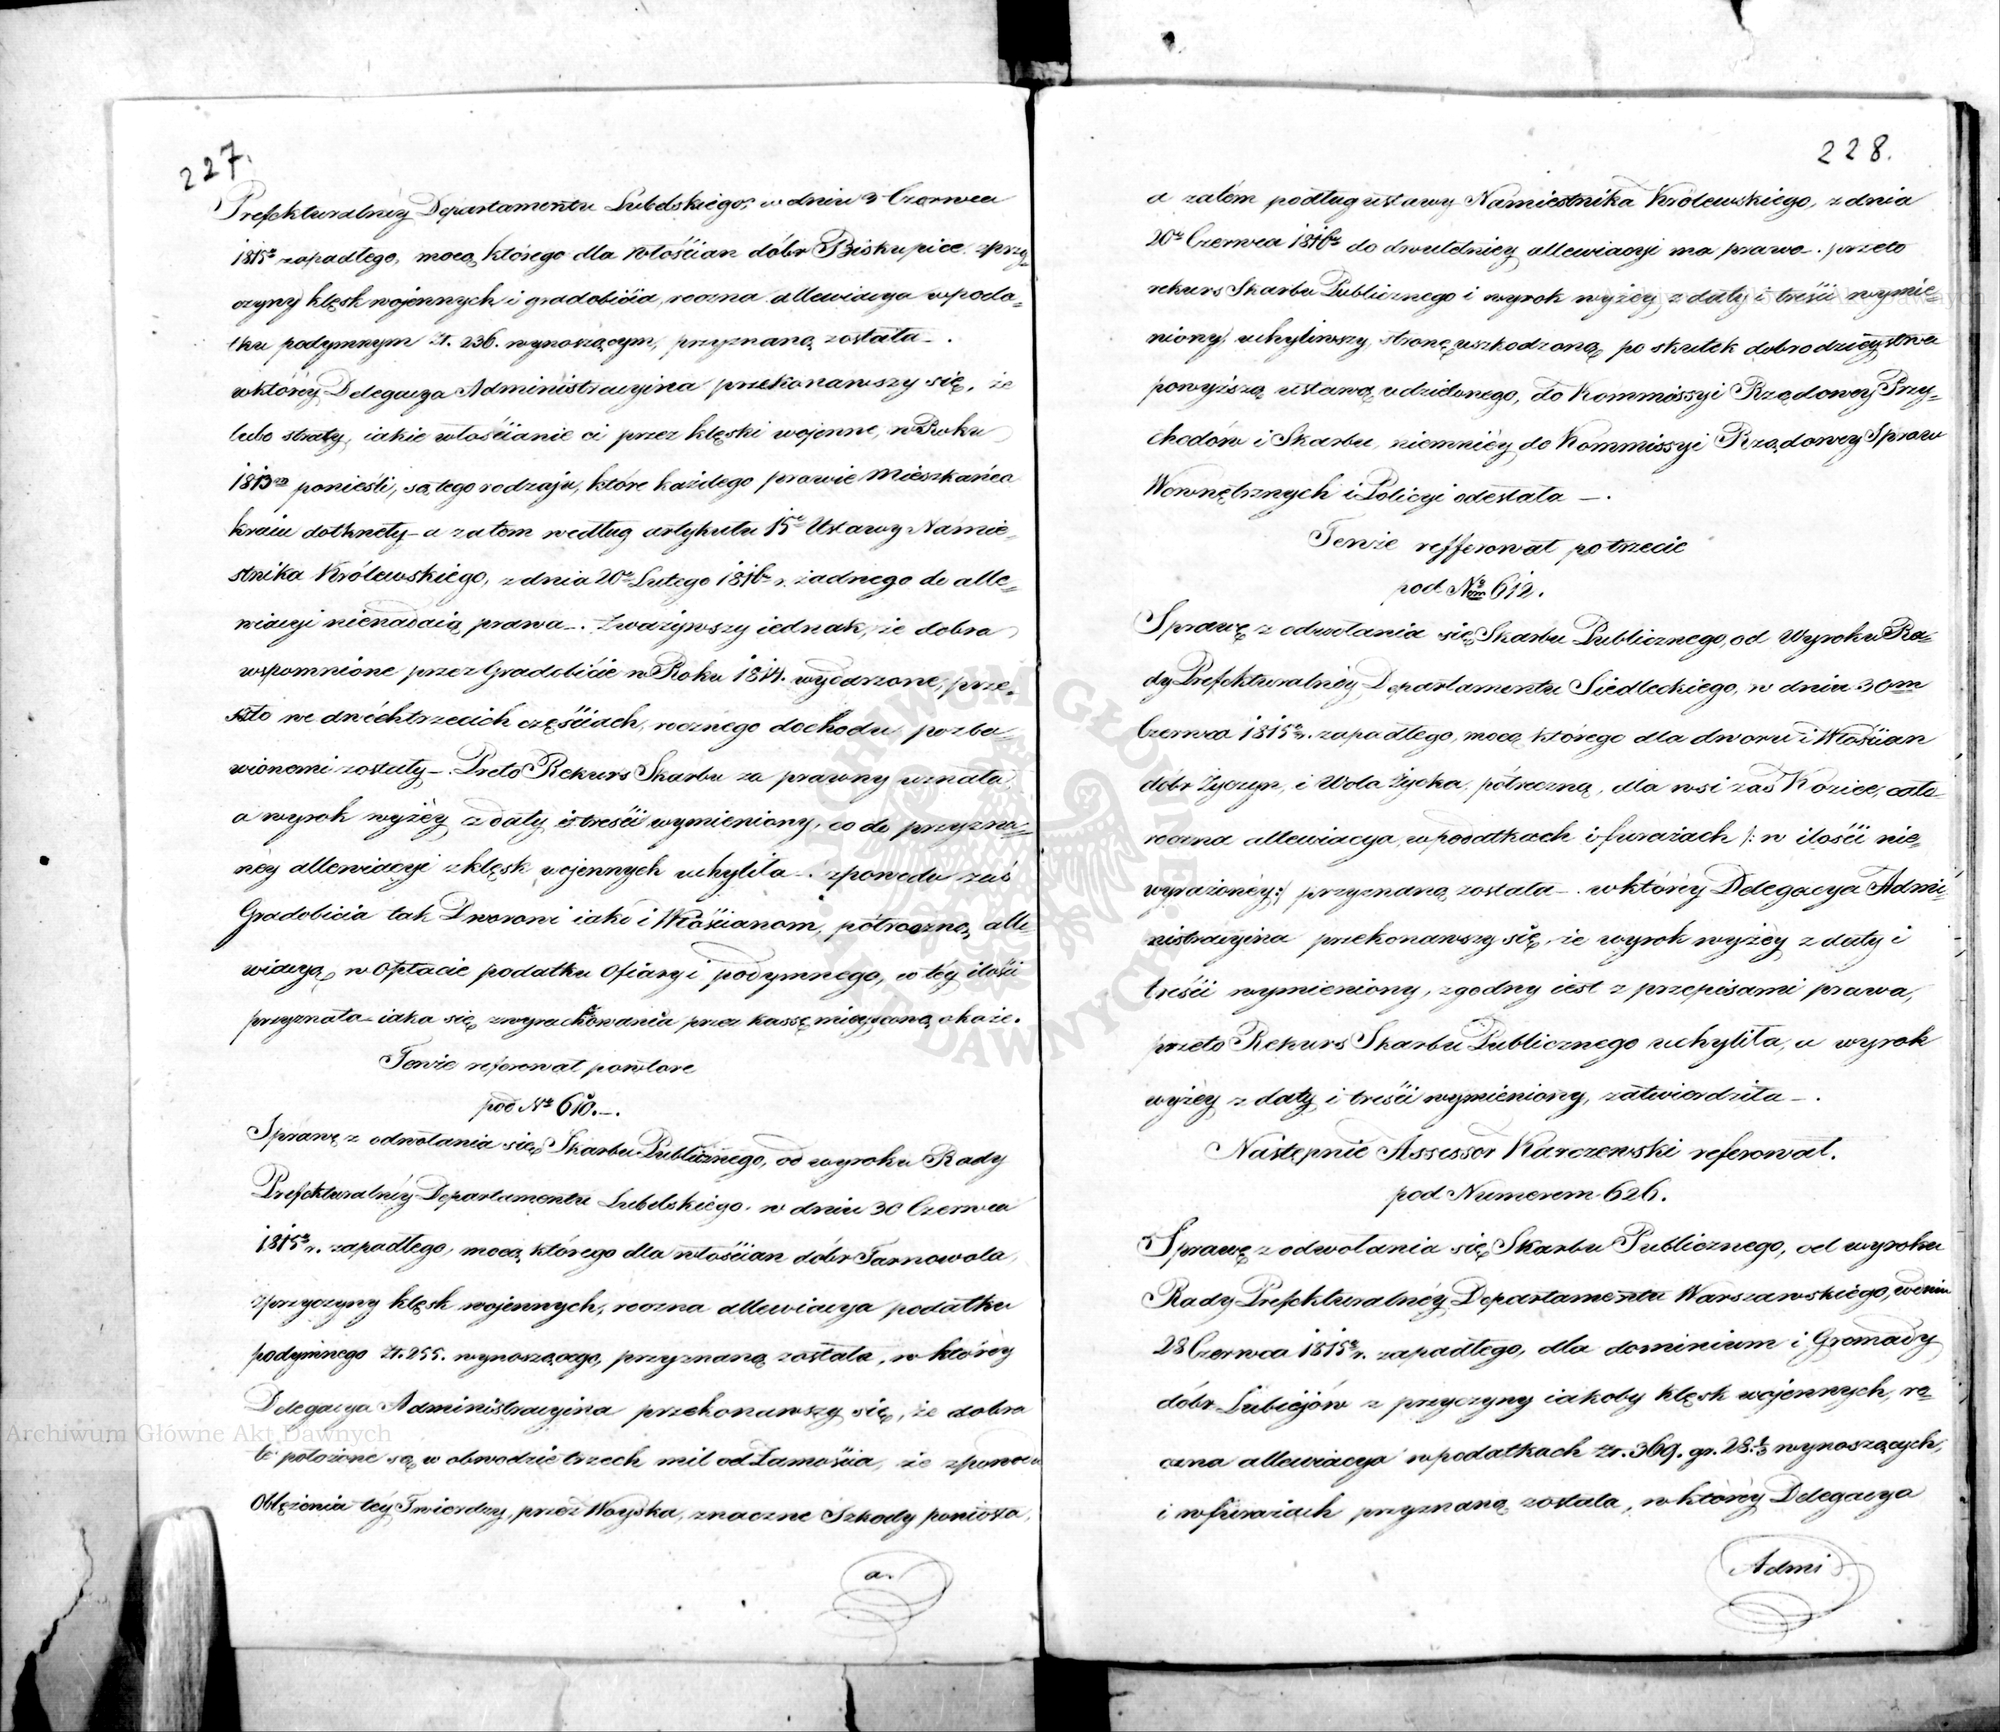 227.
Prefekturalnéy Departamentu Lubelskiego, w dniu 3 Czerwca
1815 zapadłego, mocą którego dla włościan dóbr Biskupice z przy-
czyny klęsk wojennych i gradobicia, roczna allewiacya w poda-
tku podymnym zł. 236. wynoszącym, przyznaną została –.
w któréy Delegacya Administracyina przekonawszy się, że
lubo straty, iakie włościanie ci przez klęski wojenne, w Roku
1813 ponieśli, są tego rodzaju, które każdego prawie Mieszkańca
kraiu dotknęły – a zatem według artykułu 15 Ustawy Namie-
stnika Królewskiego, z dnia 20 Lutego 1816 r. żadnego do alle-
wiacyi nienadaią prawa –. Zważywszy iednak, że dobra
wspomnione przez Gradobicie w Roku 1814. wydarzone, prze-
szło we dwéch trzecich częściach, rocznego dochodu pozba-
wionemi zostały –. Preto Rekurs Skarbu za prawny uznała,
a wyrok wyżéy z daty i treści wymieniony, co do przyzna-
néy allewiacyi z klęsk wojennych uchyliła –. z powodu zaś
Gradobicia tak Dworowi iako i Włościanom, półroczną alle-
wiacyą w opłacie podatku Ofiary i podymnego, w téy ilości
przyznała – iaka się z wyrachowania przez kassę mieyscową okaże.
Tenże referował powtore
pod Nr 610. –.
Sprawę z odwołania się Skarbu Publicznego, od wyroku Rady
Prefekturalnéy Departamentu Lubelskiego, w dniu 30 Czerwca
1815 r. zapadłego, mocą którego dla włościan dóbr Tarnowola,
z przyczyny klęsk wojennych, roczna allewiacya podatku
podymnego zł. 255. wynoszącego, przyznaną została, w któréy
Delegacya Administracyina przekonawszy się, że dobra
te położone są w obwodzie trzech mil od Zamościa, że z powodu
Oblężenia téy Twierdzy, przez Woyska, znaczne Szkody poniosła,
a.
228.
a zatém podług ustawy Namiestnika Królewskiego, z dnia
20 Czerwca 1816 do dwuletniey allewiacyi ma prawo –. przeto
rekurs Skarbu Publicznego i wyrok wyżéy z daty i treści wymie-
niony uchyliwszy, stronę uszkodzoną po skutek dobrodzieystwa
powyższą ustawą udzielonego, do Kommissyi Rządowey Przy-
chodów i Skarbu, niemniéy do Kommissyi Rządowey Spraw
Wewnętrznych i Policyi odesłała –.
Tenże refferował po trzecie
pod Nrm 612.
Sprawę z odwołania się Skarbu Publicznego, od Wyroku Ra-
dy Prefekturalnéy Departamentu Siedleckiego, w dniu 30m
Czerwca 1815 r. zapadłego, mocą którego dla dworu i Włościan
dóbr Życzyn, i Wola Życka, półroczną, dla wsi zaś Kozice, cało-
roczna allewiacya, w podatkach i furażach /: w ilości nie-
wyrażonéy :/ przyznaną została –. w któréy Delegacya Admi-
nistracyina przekonawszy się, że wyrok wyżéy z daty i
treści wymieniony, zgodny iest z przepisami prawa,
przeto Rekurs Skarbu Publicznego uchyliła, a wyrok
wyżéy z daty i treści wymieniony, zatwierdziła –.
Następnie Assessor Karczewski referował.
pod Numerem 626.
Sprawę z odwołania się Skarbu Publicznego, od wyroku
Rady Prefekturalnéy Departamentu Warszawskiego, w dniu
28 Czerwca 1815 r. zapadłego, dla dominium i Gromady
dóbr Lubiejów z przyczyny iakoby klęsk wojennych, ro-
czna allewiacya w podatkach zł. 369. gr. 28. 1/3 wynoszących,
i w furażach przyznaną została, w któréy Delegacya
Admi
Archiwum Główne Akt Dawnych
ARCHIWUM GŁÓWNE AKT DAWNYCH